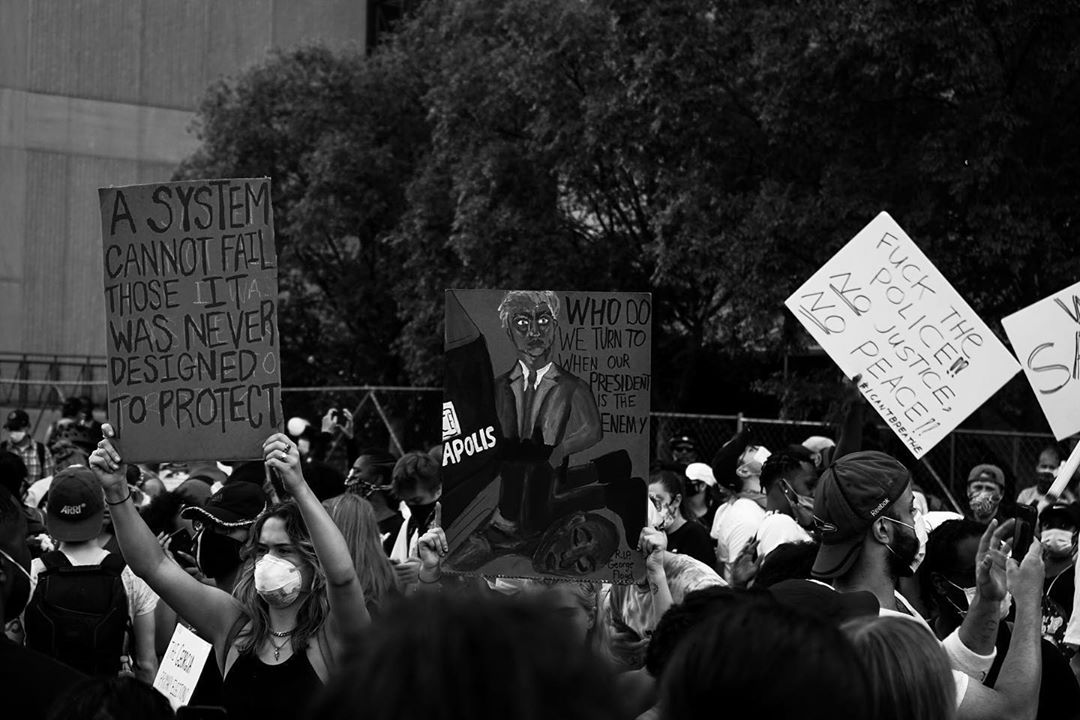 A SYSTEM
CANNOT FAIL
THOSE IT
WAS NEVER
DESIGNED
TO PROTECT
WHO DO
WE TURN TO
WHEN OUR
PRESIDENT
IS THE
ENEMY
APOLIS
R.I.P.
George
Floyd
FUCK THE
POLICE!!!
NO JUSTICE,
NO PEACE!!
#ICANTBREATHE
Reebok